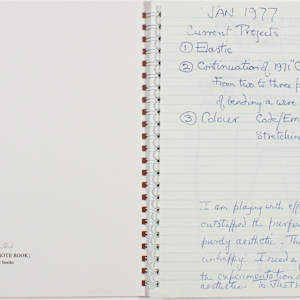 OTE BOOK)
Books
JAN 1977
Current Projects
① Elastic
② Continuation of 1971 "C
From two to three p
of bending a wire
③ Colour Code/Em
Stretchin
I am playing with eff
outstripped the purpos
purely aesthetic. The
unhappy. I need a
the experimentation
aesthetic to JUSTI